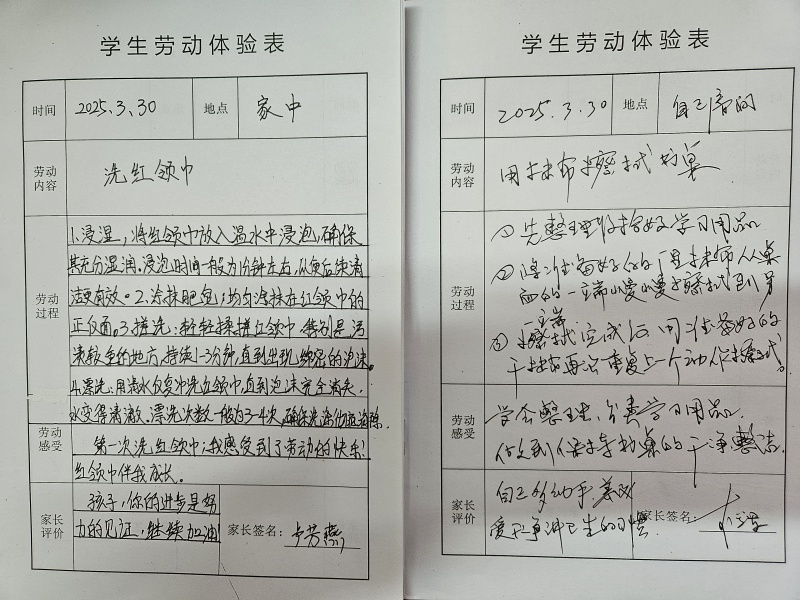 学生劳动体验表
时间 2025.3.30 地点 家中
劳动内容 洗红领巾
劳动过程
1.浸湿，将红领巾放入温水中浸泡，确保
其充分湿润。浸泡时间一般为1分钟左右，以便后续清
洁更有效。2.涂抹肥皂：均匀涂抹在红领巾的
正反面。3.搓洗：轻轻揉搓红领巾，特别是污
渍较重的地方，持续1-3分钟，直到出现绵密的泡沫。
4.漂洗：用清水反复冲洗红领巾，直到泡沫完全消失，
水变得清澈。漂洗次数一般为3-4次，确保洗涤
劳动感受
第一次洗红领巾，我感受到了劳动的快乐！
红领巾伴我成长。
家长评价
孩子，你的进步是努
力的见证，继续加油
家长签名： 卢芳燕
学生劳动体验表
时间 2025.3.30 地点 自己房间
劳动内容 用抹布擦拭书桌
劳动过程
① 先整理好学习用品
② 将准备好的湿抹布从桌
面的一端慢慢擦拭到另
一端
③ 擦拭完成后用准备好的
干抹布再次重复上一个动作擦拭。
劳动感受
学会整理、分类学习用品，
做到保持书桌的干净整洁
家长评价
自己多动手养成
爱干净卫生的习惯
家长签名：